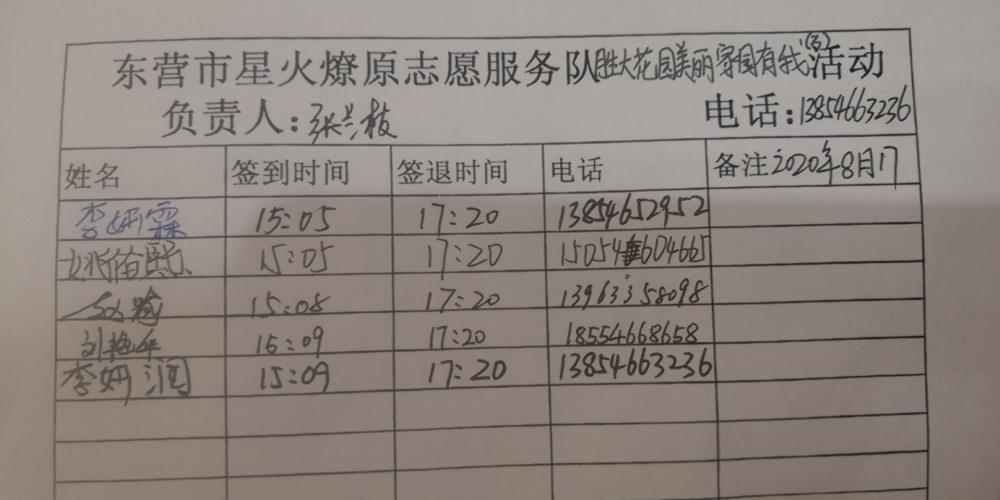 东营市星火燎原志愿服务队胜大花园美丽家园有我(3)活动
负责人:张兰枝 电话:13854663236
姓名 签到时间 签退时间 电话 备注2020年8月17
李妍霖 15:05 17:20 13854652952
姚俗熙 15:05 17:20 15054604665
15:08 17:20 13963358098
刘艳 15:09 17:20 18554668658
李妍润 15:09 17:20 13854663236